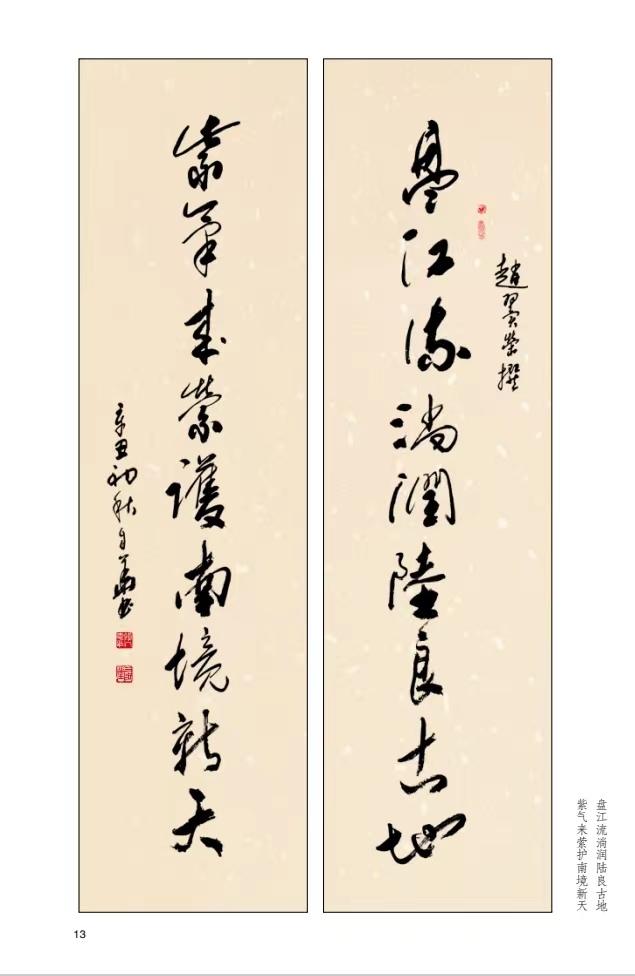 盘江流淌润陆良古地
趙翼荣撰
紫氣来縈護南境新天
辛丑初秋
盘江流淌润陆良古地
紫气来萦护南境新天
13